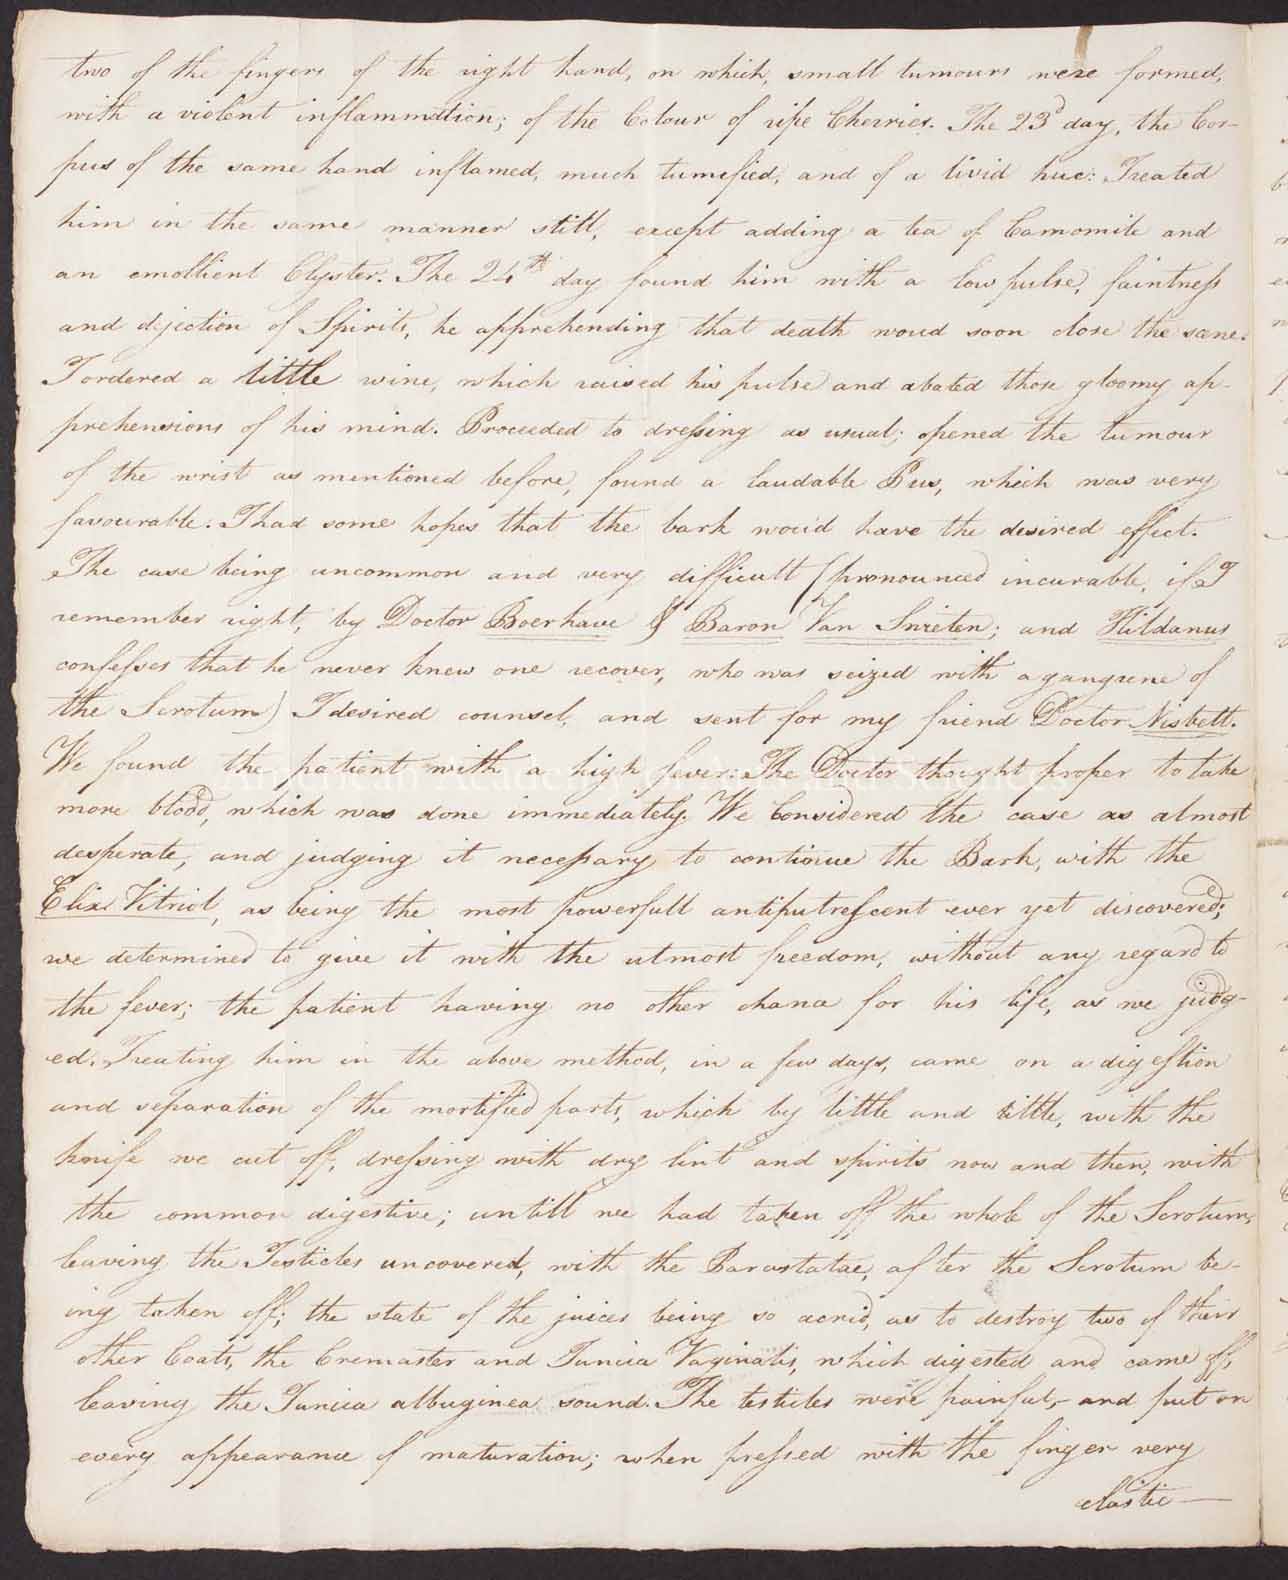 two of the fingers of the right hand, on which, small tumours were formed,
with a violent inflammation; of the Colour of ripe Cherries. The 23d day, the Cor-
pus of the same hand inflamed, much tumefied, and of a livid hue: Treated
him in the same manner still, except adding a tea of Camomile and
an emollient Clyster. The 24th day found him with a low pulse, faintness
and dejection of Spirits, he apprehending that death woud soon close the scene.
I ordered a little wine, which raised his pulse and abated those gloomy ap-
prehensions of his mind. Proceeded to dressing as usual; opened the tumour
of the wrist as mentioned before, found a laudable Pus, which was very
favourable. I had some hopes that the bark wou'd have the desired effect.
The case being uncommon and very difficult (pronounced incurable, if I
remember right, by Doctor Boerhave & Baron Van Swieten; and Hildanus
confesses that he never knew one recover, who was seized with a gangrene of
the Scrotum) I desired counsel, and sent for my friend Doctor Nisbett.
We found the patient with a high fever: The Doctor thought proper to take
more blood, which was done immediately. We Considered the case as almost
desperate, and judging it necessary to continue the Bark, with the
Elix. Vitriol, as being the most powerfull antiputrescent ever yet discovered;
we determined to give it with the utmost freedom, without any regard to
the fever; the patient having no other chance for his life, as we judg-
ed. Treating him in the above method, in a few days, came on a digestion
and separation of the mortified parts, which by little and little, with the
knife we cut off, dressing with dry lint and spirits now and then, with
the common digestive; untill we had taken off the whole of the Scrotum,
leaving the Testicles uncovered, with the Parastatae, after the Scrotum be-
ing taken off; the state of the juices being so acrid, as to destroy two of their
other Coats, the Cremaster and Tunica Vaginalis, which digested and came off,
leaving the Tunica albuginea sound. The testicles were painful,- and put on
every appearance of maturation; when pressed with the finger very
elastic —